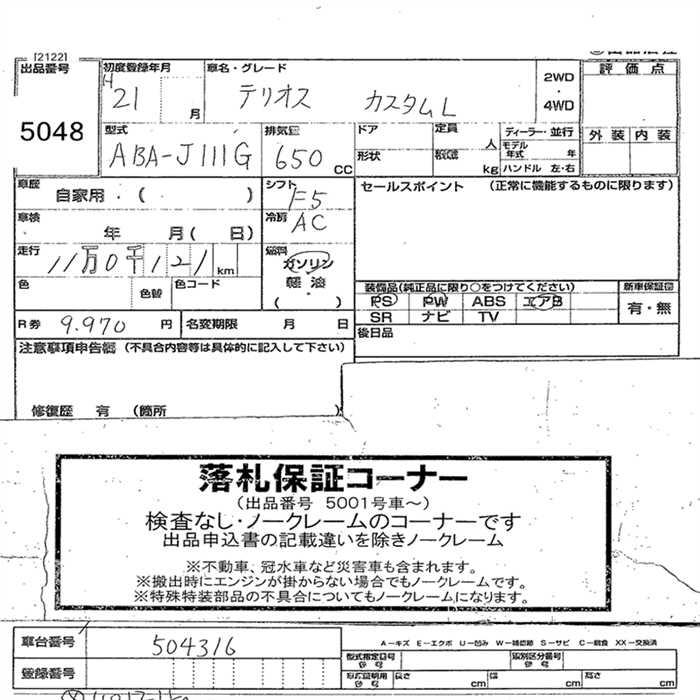 [2122]
出品番号
5048
初度登録年月
H
21
月
車名・グレード
テリオス カスタムL
2WD
・
4WD
評価点
外装 内装
型式
ABA-J111G
排気量
650 CC
ドア
定員
人
形状
積載
kg
ディーラー・並行
モデル
年式 年
ハンドル 左・右
車歴
自家用・( )
シフト
F5
セールスポイント (正常に機能するものに限ります)
車検
年 月( 日)
冷房
AC
走行
11万0千121 km
燃料
ガソリン
軽油
( )
色
色替
色コード
装備品(純正品に限り○をつけてください)
PS PW ABS エアB
SR ナビ TV
新車保証書
有・無
R券 9.970 円
名変期限 月 日
後日品
注意事項申告欄 (不具合内容等は具体的に記入して下さい)
修復歴 有 (箇所
落札保証コーナー
(出品番号 5001号車~)
検査なし・ノークレームのコーナーです
出品申込書の記載違いを除きノークレーム
※不動車、冠水車など災害車も含まれます。
※搬出時にエンジンが掛からない場合でもノークレームです。
※特殊特装部品の不具合についてもノークレームになります。
車台番号
504316
A-キズ E-エクボ U-凹み W-補修跡 S-サビ C-腐食 XX-交換済
型式指定番号
類別区分番号
登録番号
長さ cm
幅 cm
高さ cm